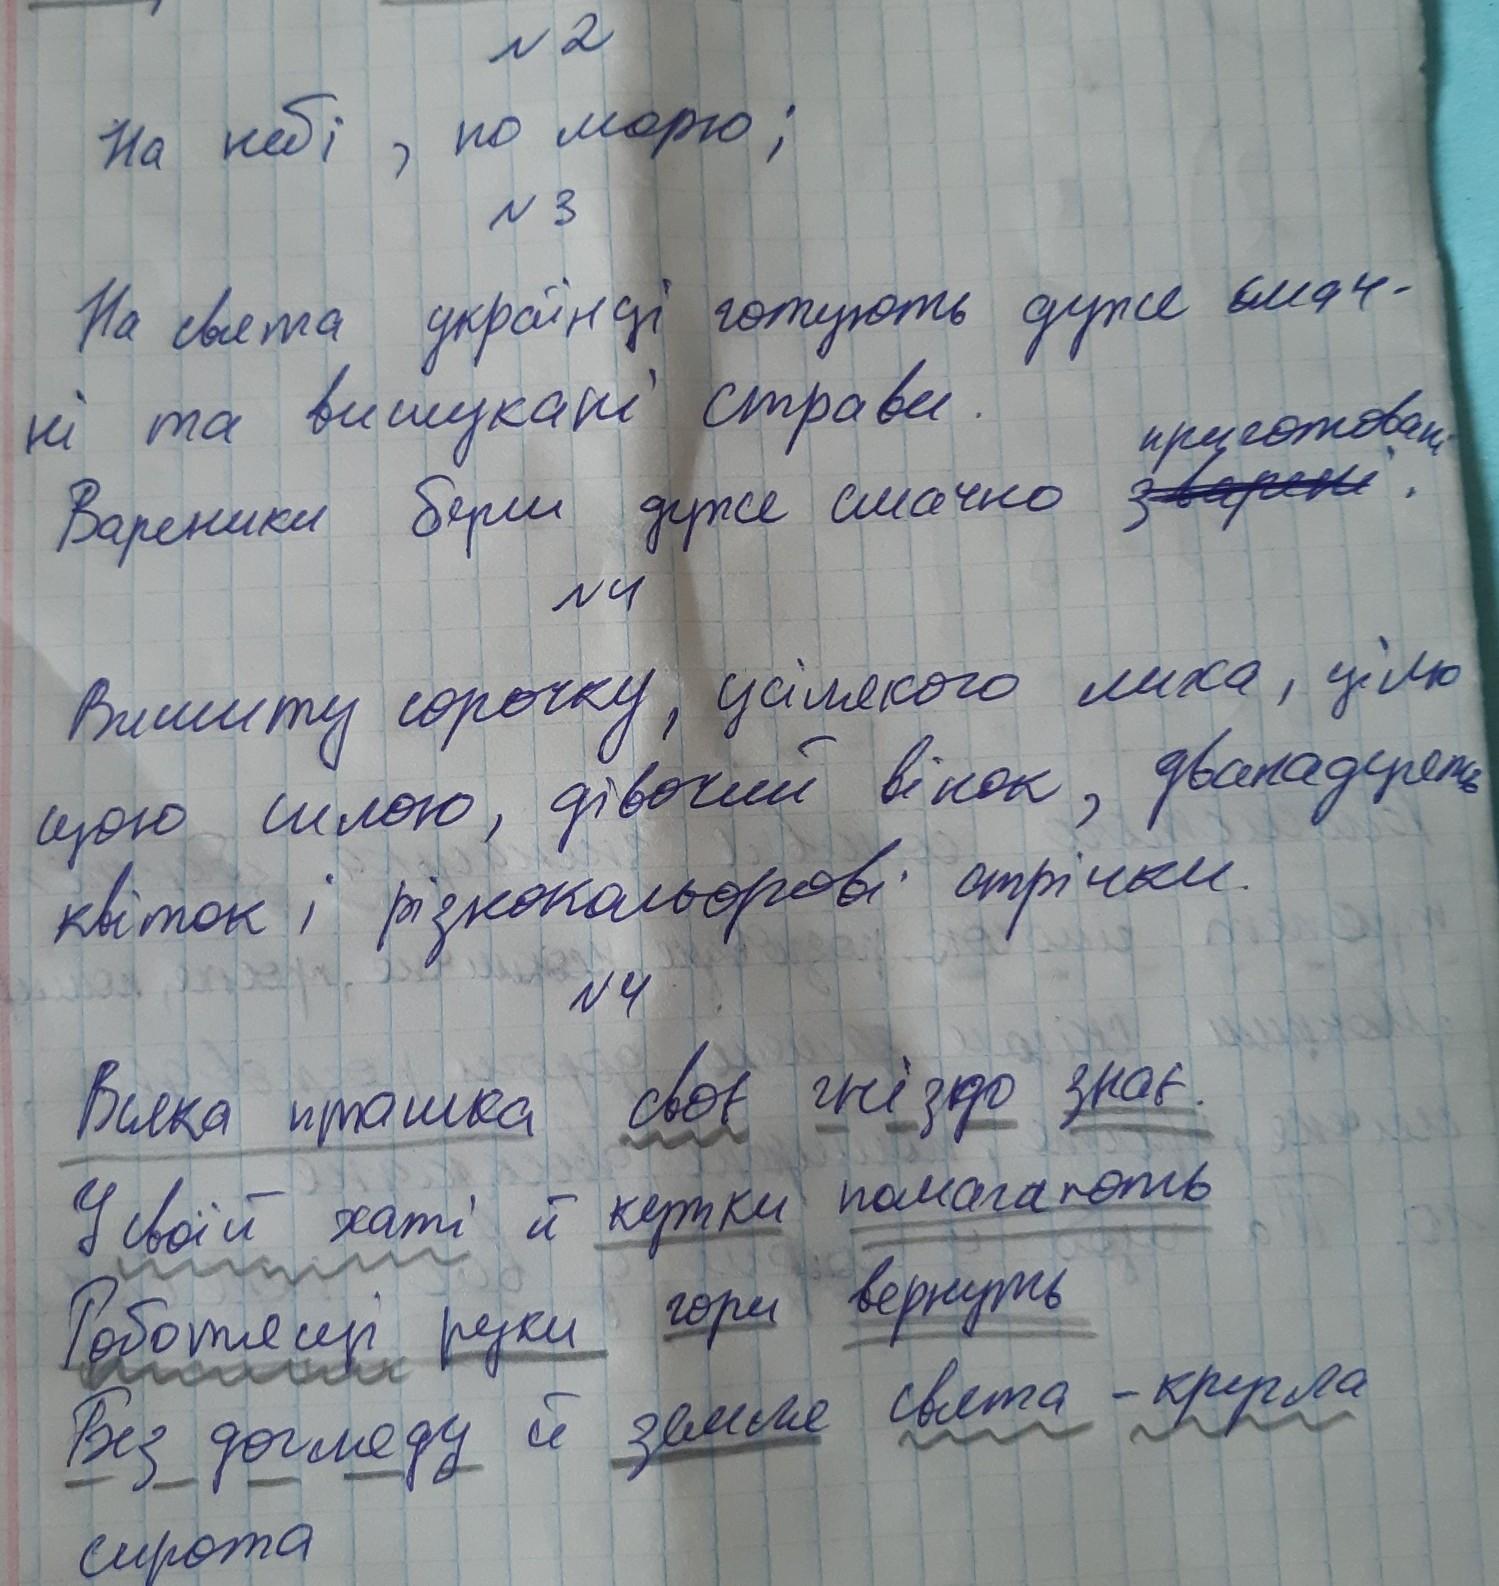 №2
На небі, по морю;
№3
На свята українці готують дуже смач-
ні та вишукані страви.
приготовані
Вареники були дуже смачно зварені.
№4
Вишиту сорочку, усілякого лиха, цілю
щою силою, дівочий вінок, дванадцять
квіток і різнокольорові стрічки.
№4
Всяка пташка своє гніздо знає.
У своїй хаті й кутки помагають
Роботящі руки гори вернуть
Без догляду й земля свята - кругла
сирота